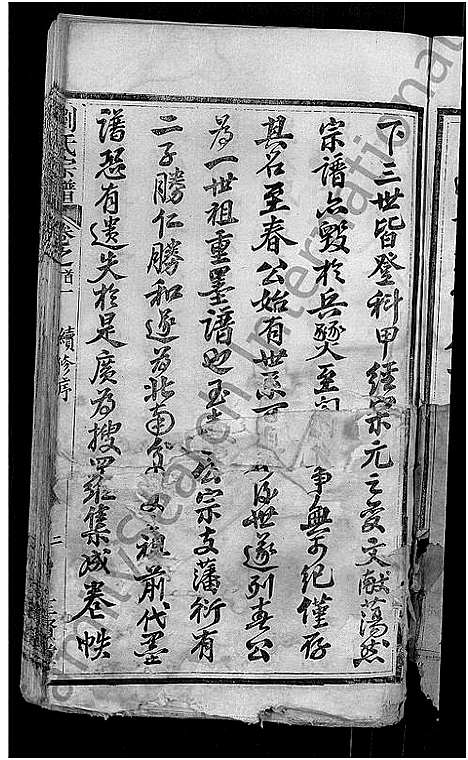 下三世皆登科甲經宋元之变文献蕩然
宗譜亦毀於兵燹至 事無可紀僅存
其名至春公始有世系可 後世遂列春公
為一世祖重墨譜也至 公宗支藩衍有
二子勝仁勝和遂為北南 祖前代墨
譜恐有遺失於是廣為搜羅集成卷帙
劉氏宗譜 卷之首一 續修序
FamilySearch International